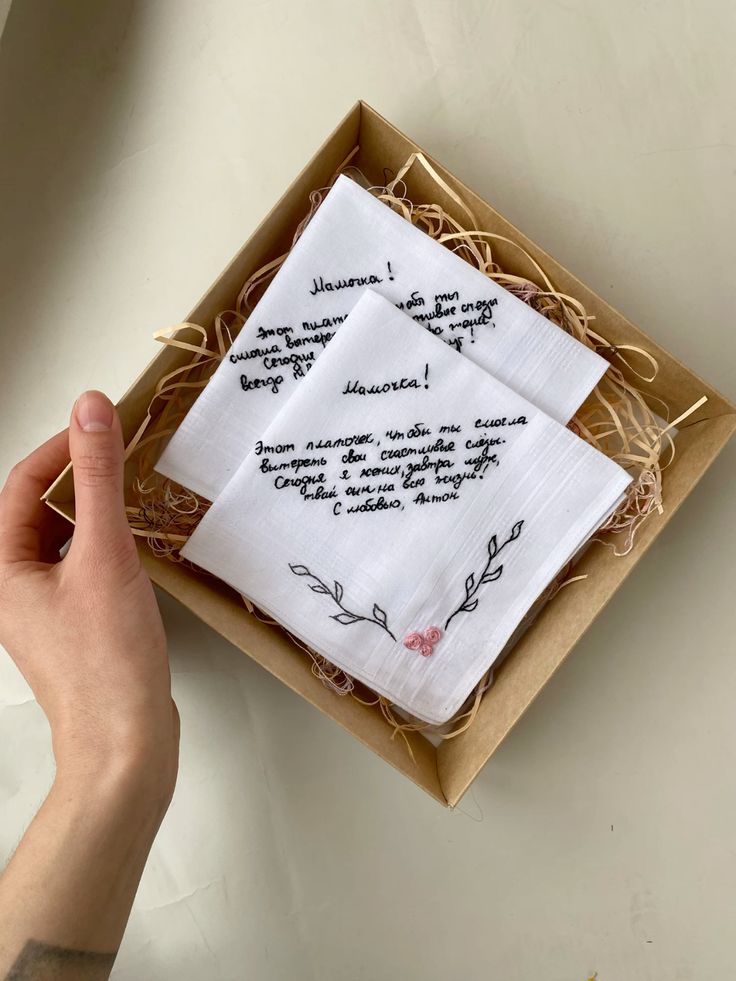 Мамочка!
Этот ты
смогла слёзы
Сегодня жена,
всегда
Мамочка!
Этот платочек, чтобы ты смогла
вытереть свои счастливые слёзы.
Сегодня я жених, завтра муж,
твой сын на всю жизнь!
С любовью, Антон